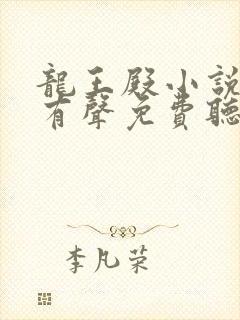 龍王殿小說
有聲免費聽
李凡荣